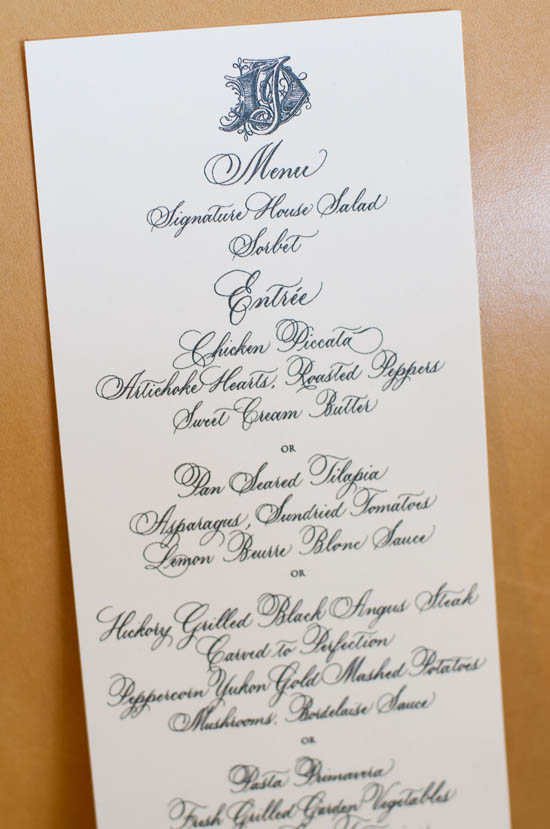 Menu
Signature House Salad
Sorbet
Entrée
Chicken Piccata
Artichoke Hearts, Roasted Peppers
Sweet Cream Butter
OR
Pan Seared Tilapia
Asparagus, Sundried Tomatoes
Lemon Beurre Blonc Sauce
OR
Hickory Grilled Black Angus Steak
Carved to Perfection
Peppercorn Yukon Gold Mashed Potatoes
Mushrooms, Bordelaise Sauce
OR
Pasta Primavera
Fresh Grilled Garden Vegetables